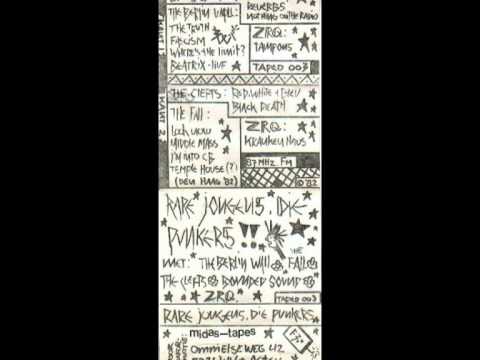 REVERBS
NOTHING ON THE RADIO
THE BERLIN WALL:
THE TRUTH
FASCISM
WHERE'S THE LIMIT?
BEATRIX-LIVE
ZRQ:
TAMPONS
TAPED 003
KANT 2
THE CLEFTS: RED, WHITE +
BLACK DEATH
THE FALL:
LOOK KNOW
MIDDLE MASS
I'M INTO CB
TEMPLE HOUSE (?)
(DEN HAAG '82)
ZRQ:
KRAUKENHAUS
87 MHZ. FM
10 '82
RARE JONGENS, DIE
PUNKERS!!
MET: THE BERLIN WALL THE FALL
THE CLEFTS BOUNDED SOUND
ZRQ.
TAPED 003
RARE JONGENS, DIE PUNKERS.
midas-tapes
OMMELSEWEG 42